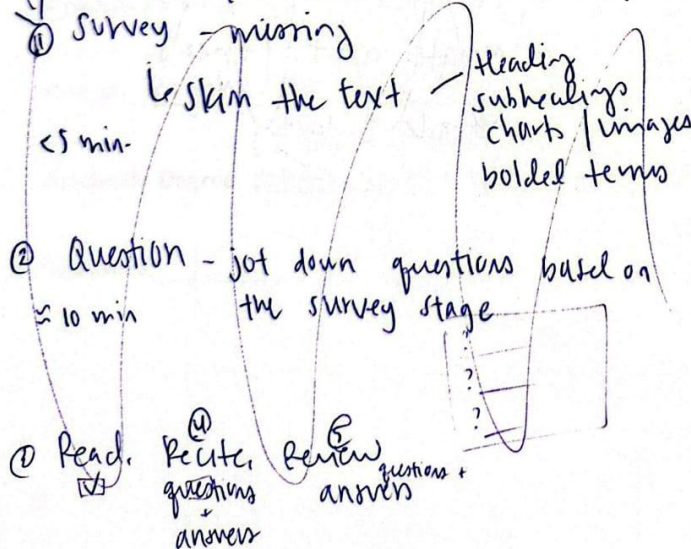 ① Survey - missing
↳ skim the text - Heading
subheadings
charts / images
bolded terms
<5 min.
② Question - jot down questions based on
≈ 10 min the survey stage
?
?
?
① Read. ④ Recite. ⑤ Review
questions + answers
questions + answers